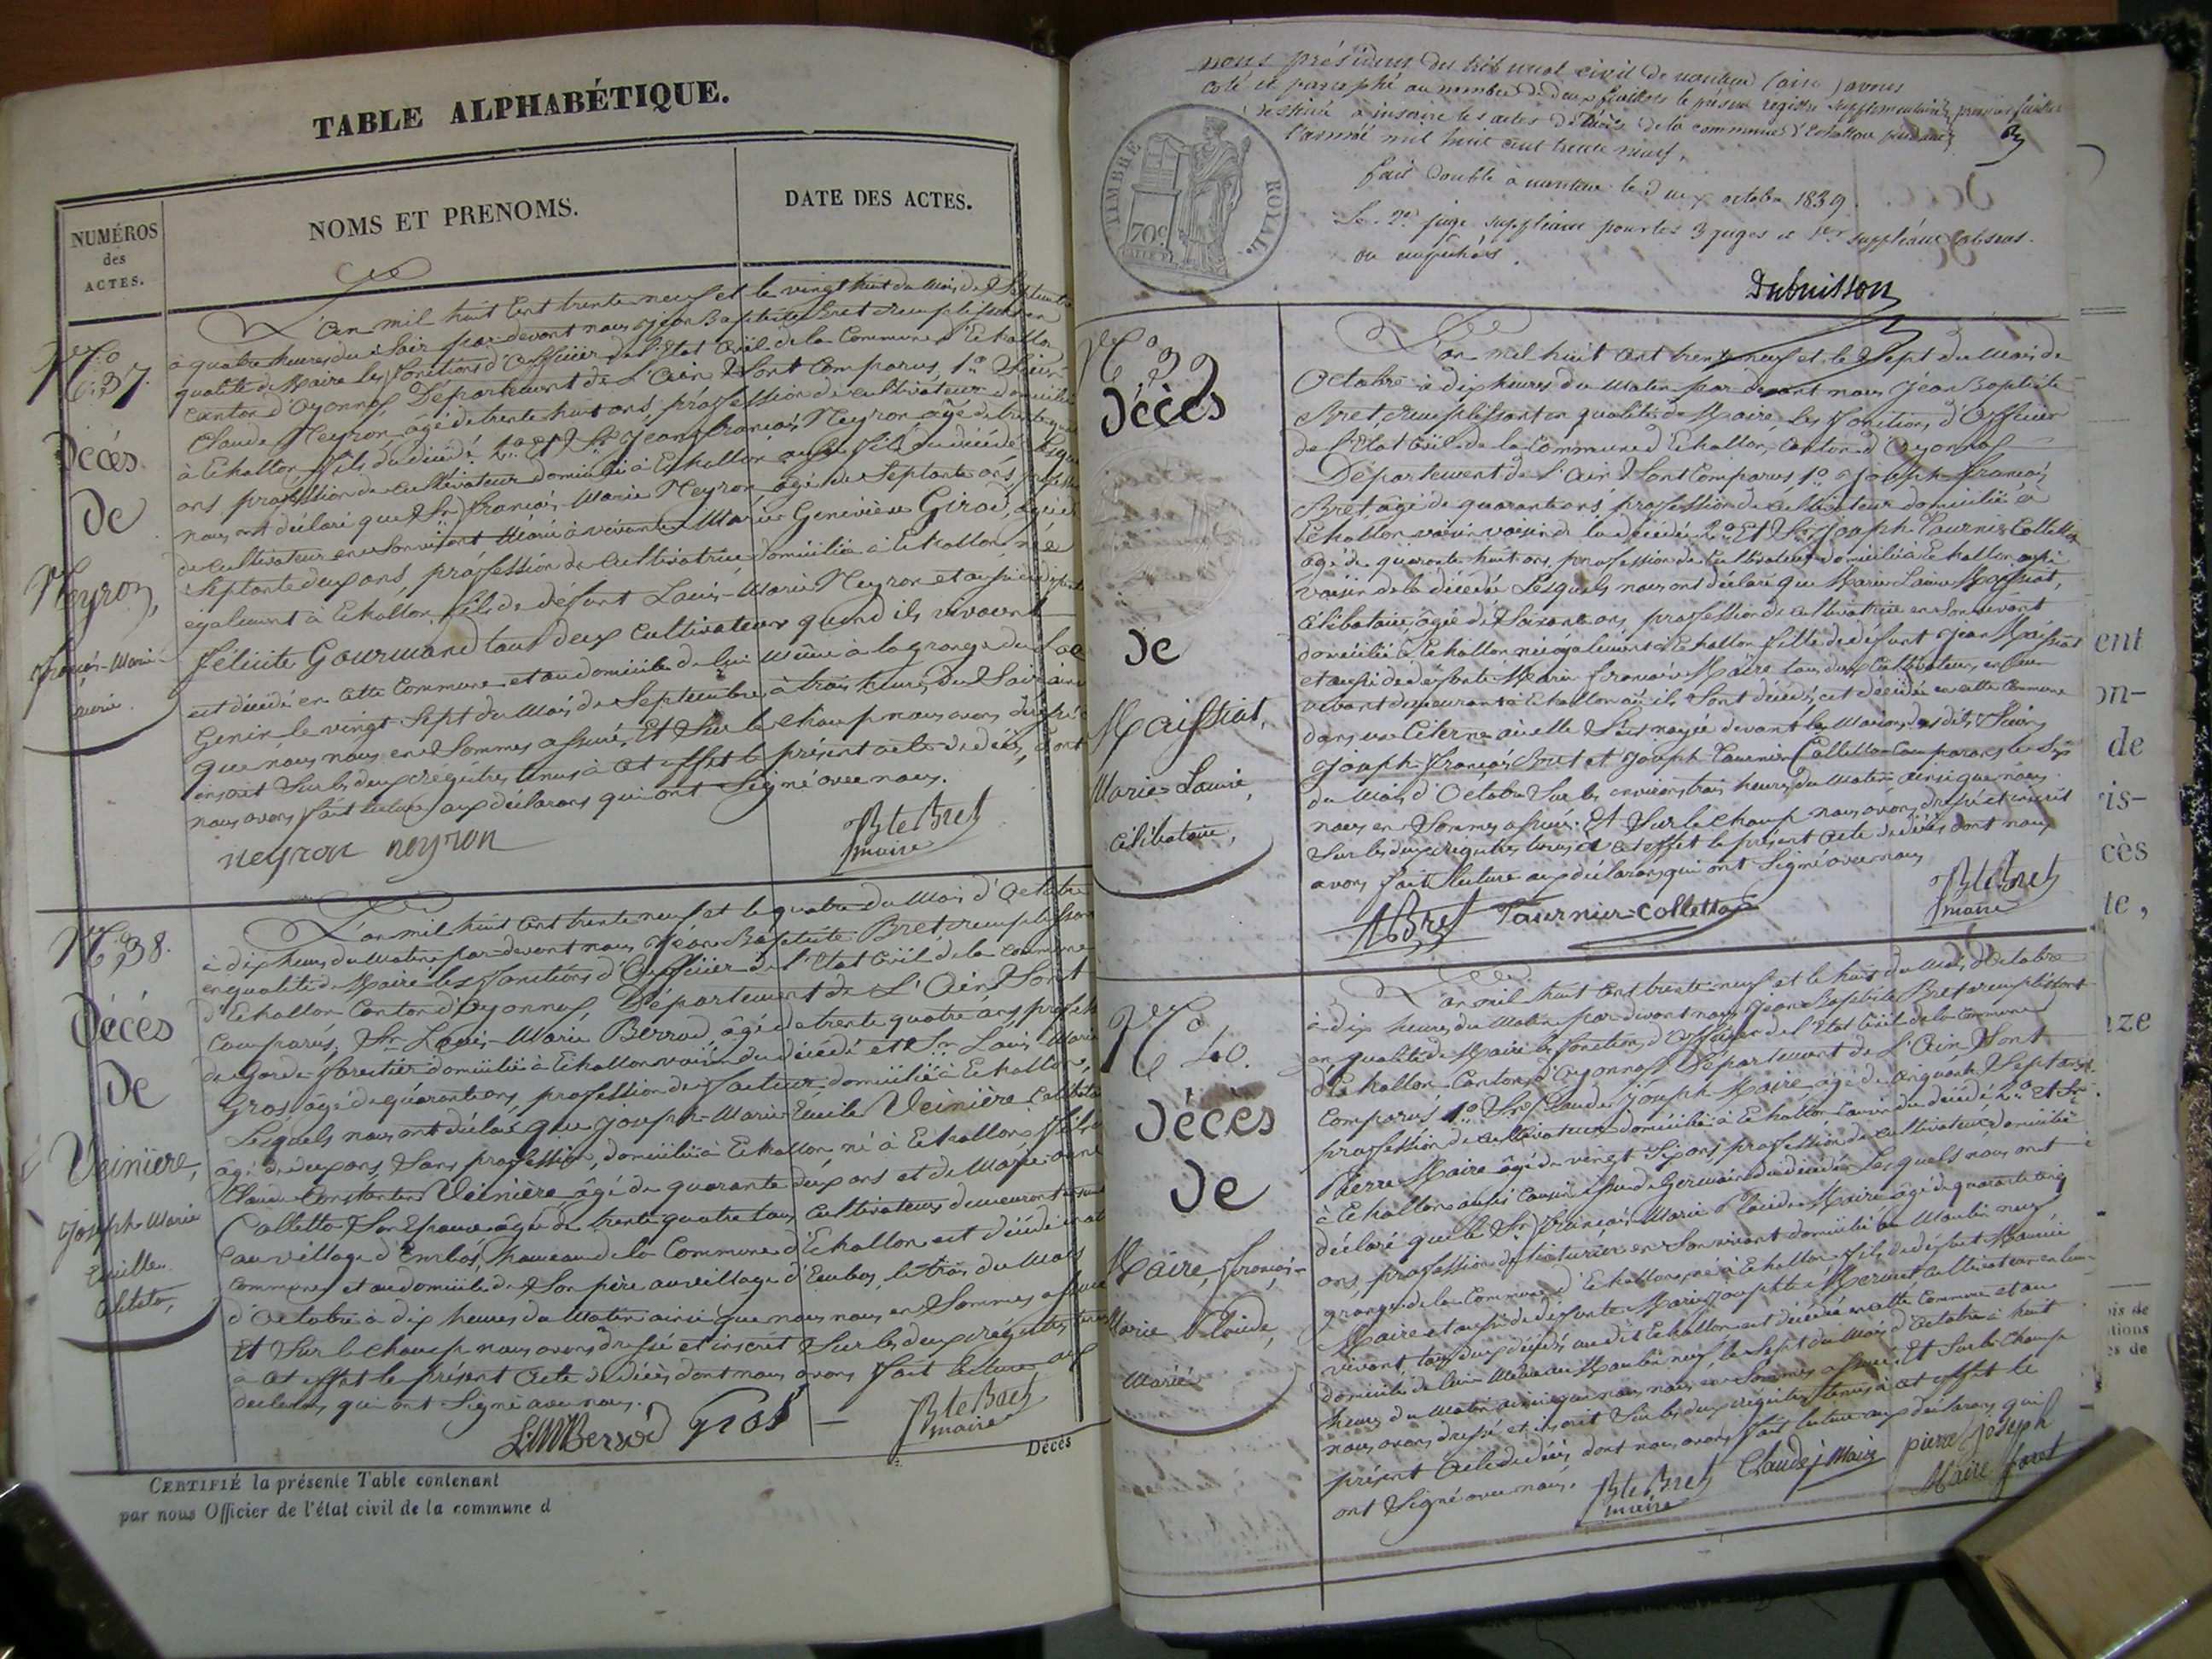 TABLE ALPHABÉTIQUE.
NUMÉROS
des
ACTES.
NOMS ET PRENOMS.
DATE DES ACTES.
N.o 37.
Décès
De
Neyron,
François-Marie
marié.
L'an mil huit cent trente neuf et le vingt huit du Mois de Septembre
à quatre heures du Soir par devant nous Jean Baptiste Bret remplissant en
qualité de Maire les fonctions d'Officier de l'Etat Civil de la Commune d'Echallon
Canton d'Oyonnas, Département de L'Ain Sont Comparus, 1.o
Claude Neyron âgé de trente huit ans, profession de cultivateur domicilié
à Echallon fils du décédé 2.o Et Sr Jean François Neyron âgé de
ans profession de cultivateur domicilié à Echallon aussi fils du décédé
nous ont déclaré que Sr François-Marie Neyron âgé de Septante ans,
de cultivateur en Son vivant Marié à vivante Marie Geneviève Girod, âgée de
Septante deux ans, profession de cultivatrice, domiciliée à Echallon, né
également à Echallon, fils de défunt Louis-Marie Neyron et aussi de défunte
félicité Gourmand tous deux cultivateurs quand ils vivaient
est décédé en cette Commune et au domicile de lui même à la grange du
Genin le vingt Sept du Mois de Septembre à trois heures du Soir ainsi
que nous nous en Sommes assuré, Et Sur le champ nous avons dressé
inscrit Sur les deux registres tenus à cet effet le présent acte de décès, dont
nous avons fait lecture aux déclarans qui ont Signé avec nous.
neyron neyron
Bte Bret
maire
N.o 38.
Décès
De
Veinière,
Joseph Marie
Emile
L'an mil huit cent trente neuf et le quatre du Mois d'Octobre
à dix heures du Matin par devant nous Jean Baptiste Bret remplissant
en qualité de Maire les fonctions d'Officier de l'Etat Civil de la commune
d'Echallon Canton d'Oyonnas, Département de L'Ain Sont
Comparus, Sr Louis-Marie Berrod, âgé de trente quatre ans,
de garde-forestier domicilié à Echallon voisin du décédé et Sr Louis Marie
Gros, âgé de quarante ans, profession de facteur domicilié à Echallon,
Lesquels nous ont déclaré que Joseph-Marie Emile Veinière
âgé de deux ans, Sans profession, domicilié à Echallon né à Echallon fils de
Claude Constantin Veinière âgé de quarante deux ans et de Marie
Colletta Son Epouse âgée de trente quatre tous cultivateurs demeurant
au village d'Embos, hameau de la Commune d'Echallon est décédé
commune et au domicile de Son père au village d'Embos, le trois du Mois
d'Octobre à dix heures du Matin ainsi que nous nous en Sommes assuré
Et Sur le champ nous avons dressé et inscrit Sur les deux registres tenus
à cet effet le présent acte de décès dont nous avons fait lecture aux
declarans, qui ont Signé avec nous.
L:MBerrod Gros
Bte Bret
maire
Décès
CERTIFIÉ la présente Table contenant
par nous Officier de l'état civil de la commune d
nous président du tribunal civil de nantua (ain) avons
coté et paraphé au nombre de deux feuillets le présent registre supplémentaire premier feuillet
destiné à inscrire les actes de décès de la commune d'Echallon pendant
l'année mil huit cent trente neuf.
fait double à nantua le deux octobre 1839.
Le 2e juge suppléant pour les 3 juges et 1er suppléant absens
ou empêchés.
Dubuisson
TIMBRE ROYAL.
70c
N.o 39
Décès
de
Maissiat,
Marie-Laure,
célibataire,
L'an mil huit cent trente neuf et le Sept du Mois de
Octobre à dix heures du Matin par devant nous Jean Baptiste
Bret, remplissant en qualité de Maire, les fonctions d'Officier
de l'Etat Civil de la Commune d'Echallon, Canton d'Oyonnas
Département de l'Ain Sont Comparus 1.o Joseph-François
Bret, âgé de quarante ans, profession de cultivateur domicilié à
Echallon voisin de la décédée 2.o Et Sr Joseph Tournier Colletta
âgé de quarante huit ans, profession de cultivateur domicilié à Echallon aussi
voisin de la décédée Lesquels nous ont déclaré que Marie Laure Maissiat,
célibataire, âgée de Soixante ans, profession de cultivatrice en Son vivant
domiciliée à Echallon née également à Echallon fille de défunt Jean Maissiat
et aussi de défunte Marie françoise Maire tous deux cultivateurs, en leur
vivant demeurant à Echallon où ils Sont décédés, est décédée en cette Commune
dans une Citerne où elle S'est noyée devant la Maison desdits Sieurs
Joseph-François Bret et Joseph Tournier Colletta Comparans, le Sept
du Mois d'Octobre Sur les environs trois heures du Matin ainsi que nous
nous en Sommes assuré. Et Sur le champ nous avons dressé et inscrit
Sur les deux registres tenus à cet effet le présent acte de décès dont nous
avons fait lecture aux déclarans qui ont Signé avec nous
Bret Tournier-Colletta
Bte Bret
maire
N.o 40.
Décès
De
Maire, François-
Marie Placide,
Marié
L'an mil huit cent trente-neuf et le huit du Mois d'Octobre
à dix heures du Matin par devant nous Jean Baptiste Bret remplissant
en qualité de Maire les fonctions d'Officier de l'Etat Civil de la Commune
d'Echallon Canton d'Oyonnas Département de L'Ain Sont
Comparus 1.o Sr Claude Joseph Maire âgé de cinquante Sept ans,
profession de cultivateur domicilié à Echallon Cousin du décédé 2.o Et Sr
Pierre Maire âgé de vingt Six ans, profession de cultivateur domicilié
à Echallon aussi Cousin issu de Germain du décédé Lesquels nous ont
déclaré que le Sr François Marie Placide Maire âgé de quarante cinq
ans, profession de en Son vivant domicilié au Moulin neuf
granges de la Commune d'Echallon, né à Echallon fils de défunt
Maire et aussi de défunte Marie Josephte Mermet, cultivateurs en leur
vivant, tous deux décédés audit Echallon est décédé en cette Commune et au
domicile de lui Même au Moulin neuf, le Sept du Mois d'Octobre à huit
heures du Matin ainsi que nous nous en Sommes assuré. Et Sur le Champ
nous avons dressé et inscrit Sur les deux registres tenus à cet effet le
présent Acte de décès, dont nous avons fait lecture aux déclarans qui
ont Signé avec nous.
Bte Bret
maire
Claude J Maire
pierre joseph
Maire
ent
on-
de
is-
cès
te,
ze